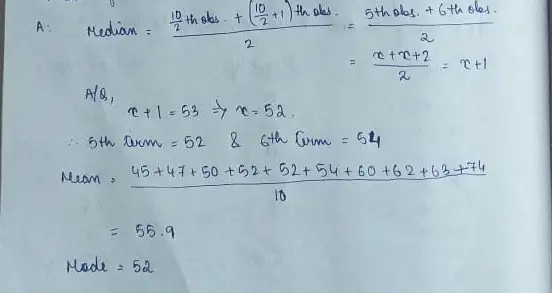 A: Median = (10/2 th obs. + (10/2 + 1) th obs.) / 2 = (5th obs. + 6th obs.) / 2
= (x + x + 2) / 2 = x + 1
A/Q,
x + 1 = 53 ⇒ x = 52.
∴ 5th term = 52 & 6th term = 54
Mean = (45 + 47 + 50 + 52 + 52 + 54 + 60 + 62 + 63 + 74) / 10
= 55.9
Mode = 52